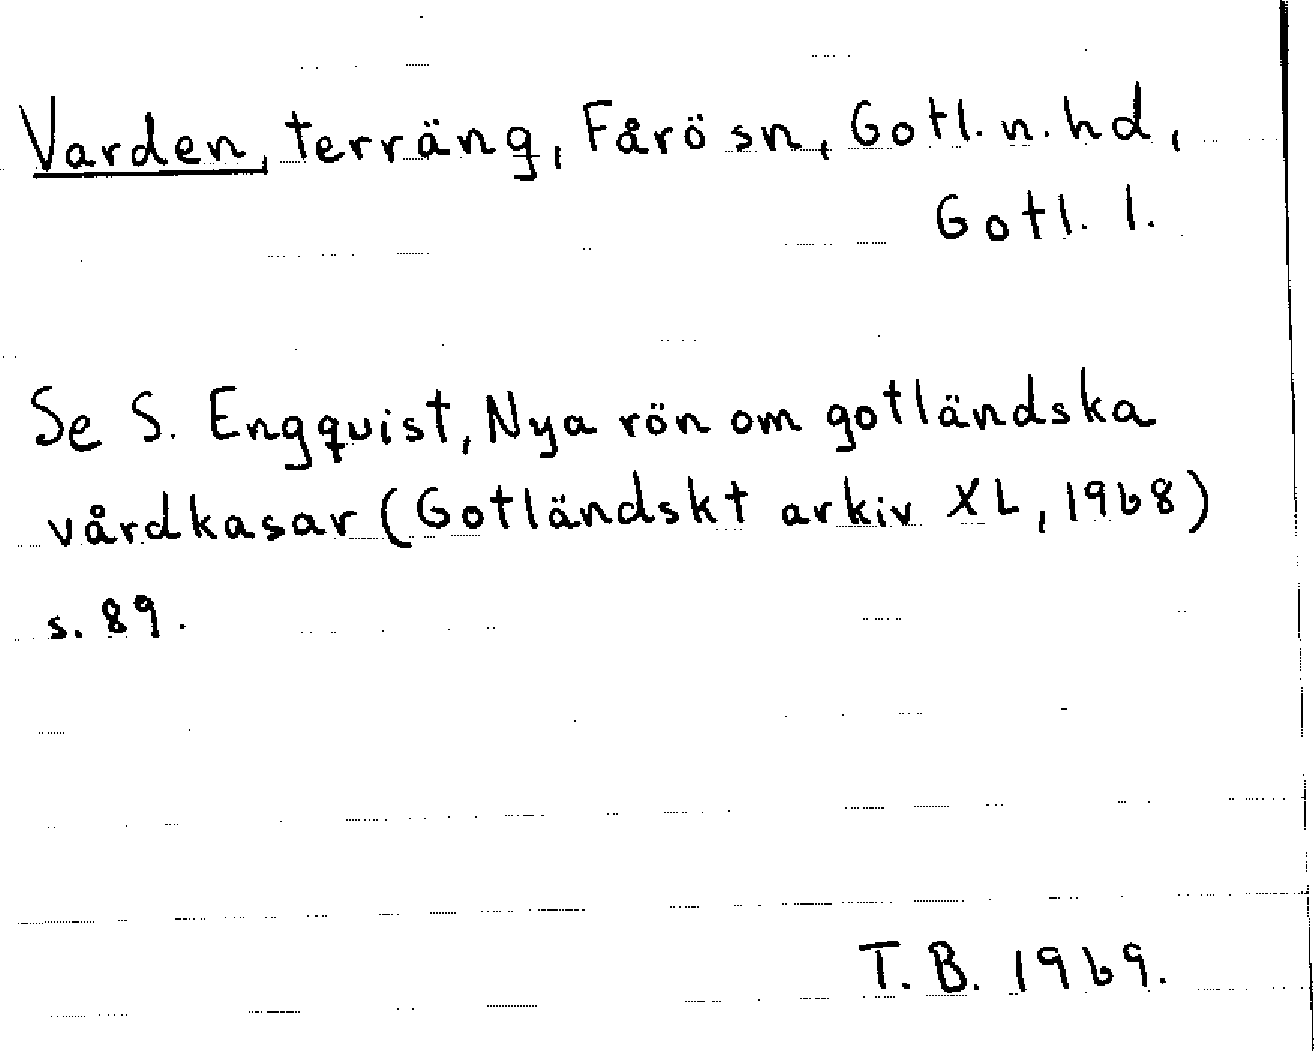 Varden, terräng, Fårö sn, Gotl. n. hd,
Gotl. l.
Se S. Engquist, Nya rön om gotländska
vårdkasar (Gotländskt arkiv XL, 1968)
s. 89.
T. B. 1969.